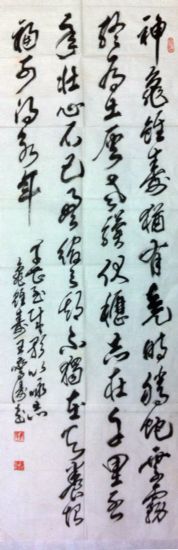 神龜雖壽猶有竟時騰蛇乘霧
終為土灰老驥伏櫪志在千里
年壯心不已盈縮之期不獨在天養怡
福可得永年
龜雖壽王